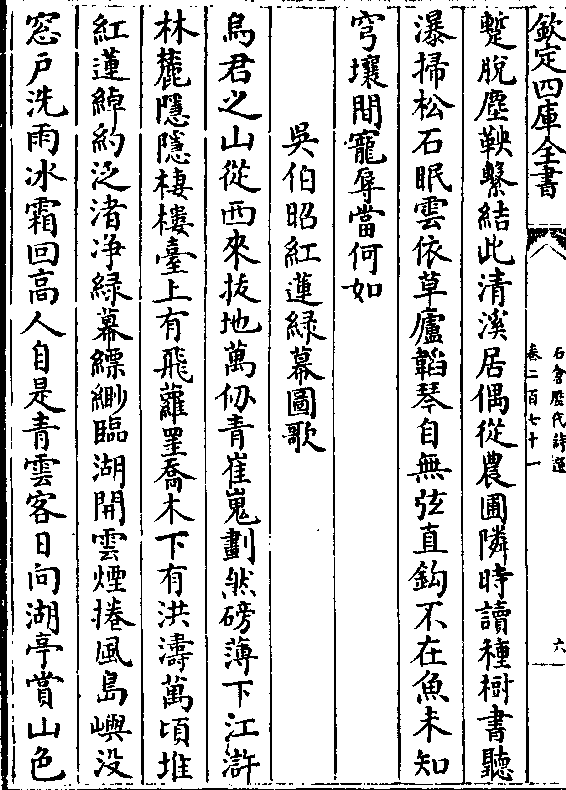 欽定四庫全書
石倉歷代詩選
卷二百七十一
六
蹔脫塵鞅繫結此清溪居偶從農圃隣時讀種樹書聽
瀑掃松石眠雲依草廬韜琴自無弦直鈎不在魚未知
穹壤間寵辱當何如
吳伯昭紅蓮緑幕圖歌
烏君之山從西來拔地萬仞青崔嵬劃然磅薄下江滸
林麓隱隱棲樓臺上有飛蘿罥喬木下有洪濤萬頃堆
紅蓮綽約泛渚净緑幕縹緲臨湖開雲煙捲風島嶼没
窓戸洗雨冰霜回高人自是青雲客日向湖亭賞山色